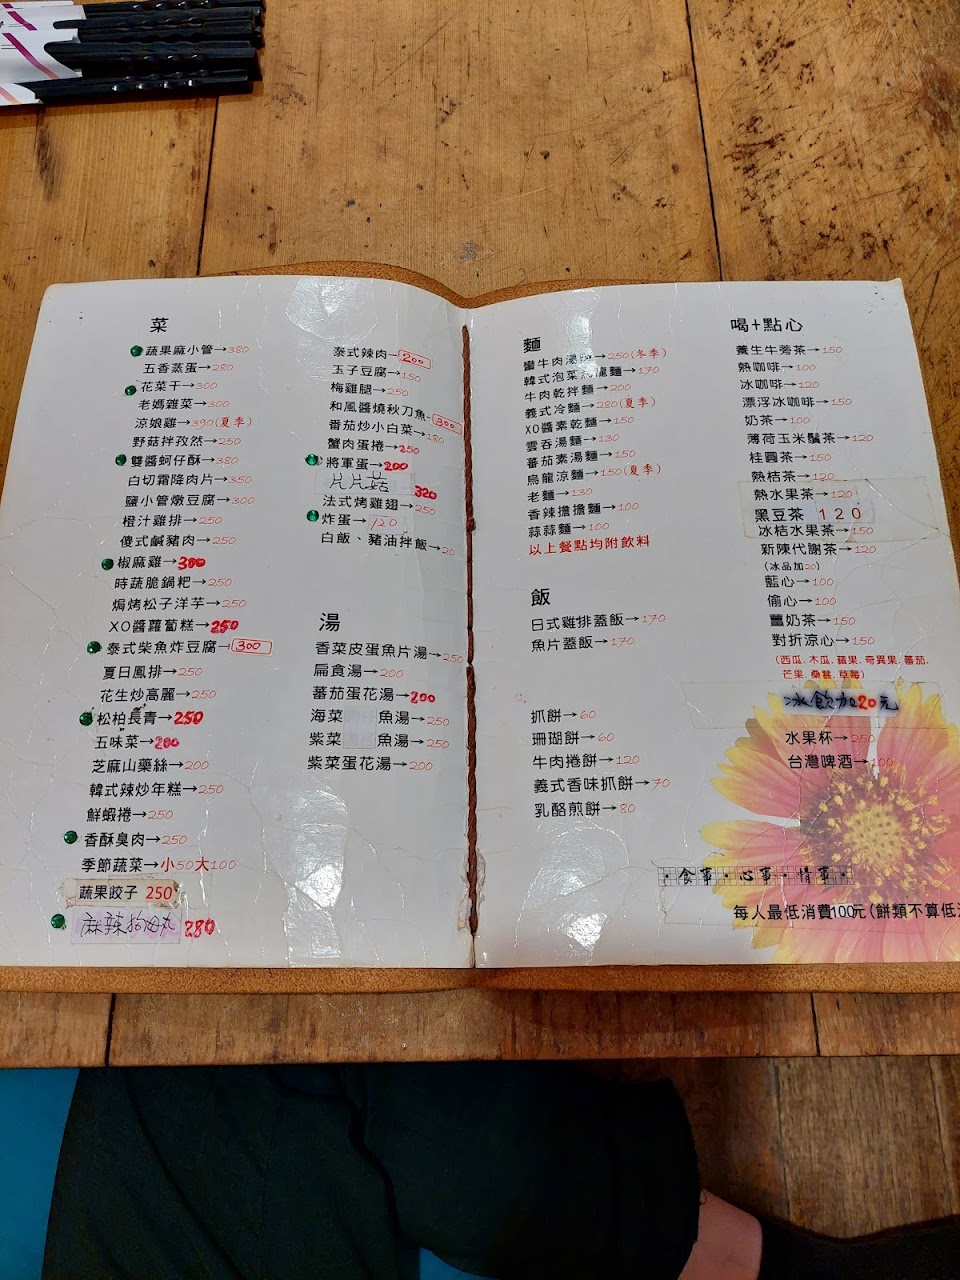 菜
蔬果麻小管→380
五香蒸蛋→280
花菜干→300
老媽雜菜→300
涼娘雞→390(夏季)
野菇拌孜然→250
雙醬蚵仔酥→380
白切霜降肉片→350
鹽小管燉豆腐→300
橙汁雞排→250
傻式鹹豬肉→250
椒麻雞→300
時蔬脆鍋粑→250
焗烤松子洋芋→250
XO醬蘿蔔糕→250
泰式柴魚炸豆腐→300
夏日鳳排→250
花生炒高麗→250
松柏長青→250
五味菜→200
芝麻山藥絲→200
韓式辣炒年糕→250
鮮蝦捲→250
香酥臭肉→250
季節蔬菜→小50大100
蔬果餃子 250
麻辣 280
泰式辣肉→200
玉子豆腐→150
梅雞腿→250
和風醬燒秋刀魚→300
番茄炒小白菜→180
蟹肉蛋捲→250
將軍蛋→200
片片菇 320
法式烤雞翅→250
炸蛋→120
白飯、豬油拌飯→20
湯
香菜皮蛋魚片湯→250
扁食湯→200
蕃茄蛋花湯→200
海菜 魚湯→250
紫菜 魚湯→250
紫菜蛋花湯→200
麵
蠻牛肉湯麵→250(冬季)
韓式泡菜烏龍麵→170
牛肉乾拌麵→200
義式冷麵→280(夏季)
XO醬素乾麵→150
雲吞湯麵→130
蕃茄素湯麵→150
烏龍涼麵→150(夏季)
老麵→130
香辣擔擔麵→100
蒜蒜麵→100
以上餐點均附飲料
飯
日式雞排蓋飯→170
魚片蓋飯→170
抓餅→60
珊瑚餅→60
牛肉捲餅→120
義式香味抓餅→70
乳酪煎餅→80
喝+點心
養生牛蒡茶→150
熱咖啡→100
冰咖啡→120
漂浮冰咖啡→150
奶茶→100
薄荷玉米鬚茶→120
桂圓茶→150
熱桔茶→120
熱水果茶→120
黑豆茶 120
冰桔水果茶→150
新陳代謝茶→120
(冰品加20)
藍心→100
偷心→100
薑奶茶→150
對折涼心→150
(西瓜.木瓜.蘋果.奇異果.蕃茄.
芒果.桑葚.草莓)
冰飲加20元
水果杯→250
台灣啤酒→100
·食事·心事·情事·
每人最低消費100元(餅類不算低